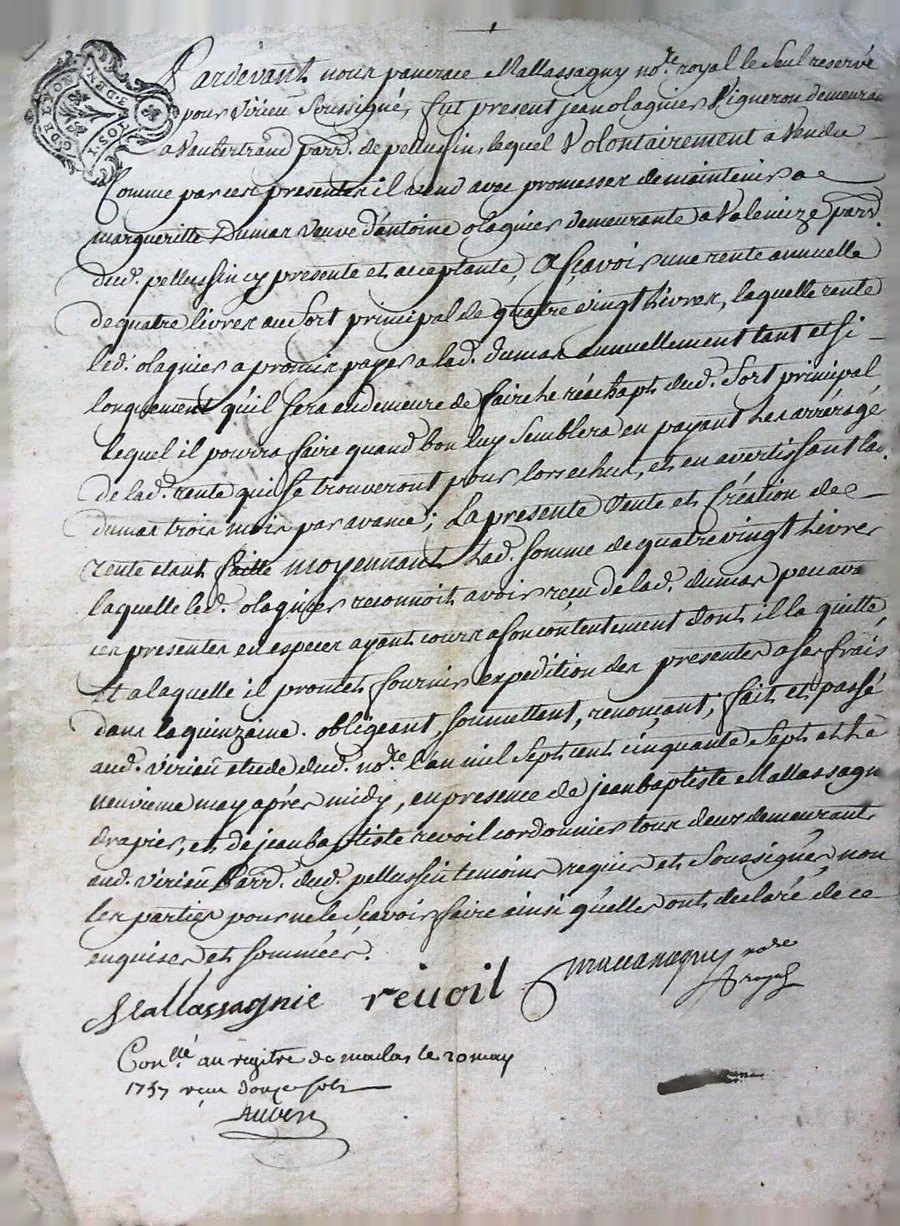 G. DE LYON
2 DEN
1 SOL
Pardevant nous pancrace Mallassagny no.re royal le Seul reservé
pour Virieu Soussigné, fut present jean olagnier Vigneron demeurant
a Vaubertrand parr. de pellussin, lequel Volontairement à Vendu
Comme par ces presentes il vend avec promesses de maintenir a
margueritte Dumas Veuve d'antoine olagnier demeurante a Valencize parr.
dud. pellussin cy presente et acceptante, Asçavoir une rente annuelle
de quatre livres au Sort principal de quatre vingt Livres, laquelle rente
led. olagnier a promis payer a lad. dumas annuellement tant et si
longuement qu'il sera en demeure de faire le réachapt dud. Sort principal
lequel il pourra faire quand bon luy Semblera en payant les arrérage
de lad. rente qui se trouveront pour lors echus, et en avertissant lad.
dumas trois mois par avance; La presente Vente et Création de
rente étant faitte moyennant Lad. somme de quatre vingt Livres
laquelle led. olagnier reconnoit avoir reçu de lad. dumas peu avant
ces presentes en especes ayant cours a son contentement dont il la quitte,
Et a laquelle il promet fournir expedition des presentes a ses frais
dans la quinzaine. obligeant, soumettant, renonçant; fait et passé
aud. Virieu etude dud. no.re L'an mil Sept cent cinquante Sept et Le
neuvieme may après midy, en presence de jean baptiste Mallassagny
drapier, et de jean baptiste revoil cordonnier tous deux demeurant
aud. Virieu Parr. dud. pellussin temoins requis et Soussignés, non
les parties pour ne le Sçavoir faire ainsi qu'elles ont declaré de ce
enquises et sommées.
Mallassagnie revoil Mallassagny no.re
royal
Con.llé au registre de maclas le 10 may
1757 reçu douze sols